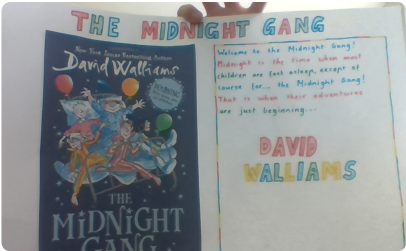 THE MIDNIGHT GANG
New York Times Bestselling Author
David Walliams
THE
MIDNIGHT
GANG
Welcome to the Midnight Gang!
Midnight is the time when most
children are fast asleep, except of
course for... the Midnight Gang!
That is when their adventures
are just beginning...
DAVID
WALLIAMS